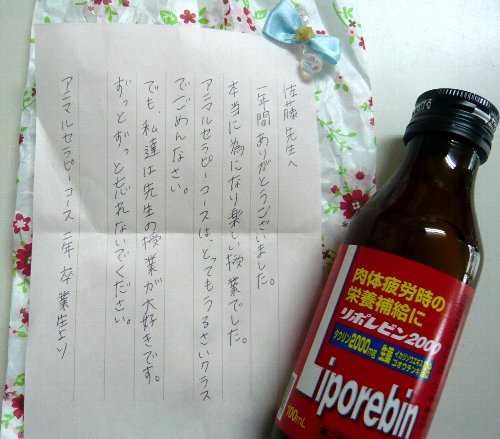 佐藤先生へ
一年間ありがとうございました。
本当に為になり楽しい授業でした。
アニマルセラピーコースは、とってもうるさいクラス
でごめんなさい。
でも、私達は先生の授業が大好きです。
ずっとずっと忘れないでください。
アニマルセラピーコース 二年 卒業生より
肉体疲労時の
栄養補給に
リポレビン2000
タウリン2000mg 生薬
イカリソウエキス
ゴオウチンキ
Liporebin
100mL